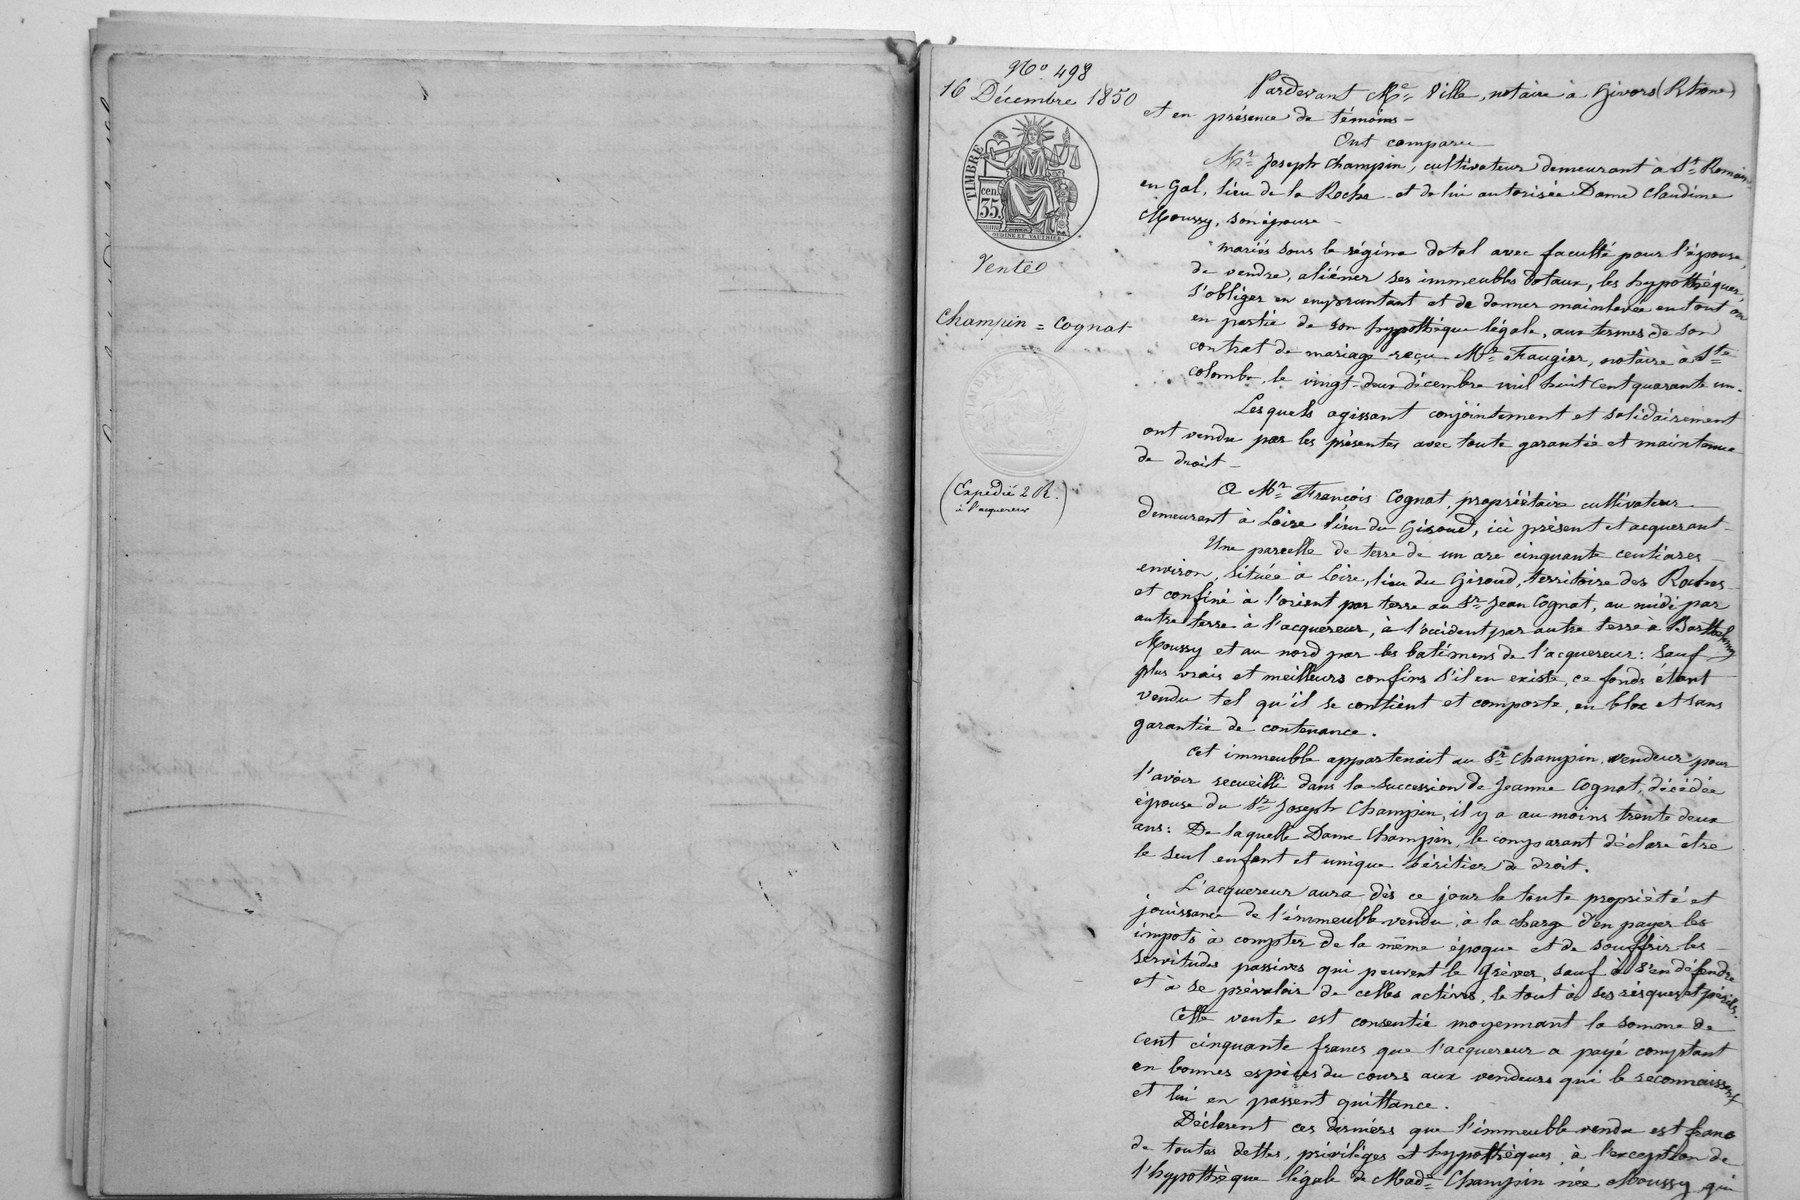 N° 498
16 Décembre 1850
TIMBRE
35 cen
Vente
Champin = Cognat
(Expédié 2 R.
à l'acquereur)
Pardevant Me Ville, notaire à Givors (Rhône)
et en présence de témoins -
Ont comparu
Mr Joseph Champin, cultivateur demeurant à St Romain
en Gal, lieu de la Roche et de lui autorisée Dame Claudine
Moussy, son épouse -
mariés sous le régime dotal avec faculté pour l'épouse,
de vendre, aliéner ses immeubles dotaux, les hypothéquer,
s'obliger en empruntant et de donner mainlevée en tout ou
en partie de son hypothèque légale, aux termes de son
contrat de mariage reçu Me Faugier, notaire à Ste
colombe, le vingt-deux décembre mil huit cent quarante un.
Lesquels agissant conjointement et solidairement
ont vendu par les présentes avec toute garantie et maintenue
de droit -
A Mr François Cognat, propriétaire cultivateur
demeurant à Loire lieu du Giroud, ici présent et acquerant -
Une parcelle de terre de un are cinquante centiares
environ, située à Loire, lieu du Giroud, territoire des Roches
et confiné à l'orient par terre au Sr Jean Cognat, au midi par
autre terre à l'acquereur, à l'occident par autre terre à Barthelemy
Moussy et au nord par les batimens de l'acquereur: sauf
plus vrais et meilleurs confins s'il en existe, ce fonds étant
vendu tel qu'il se contient et comporte, en bloc et sans
garantie de contenance.
Cet immeuble appartenait au Sr Champin, vendeur pour
l'avoir recueilli dans la succession de Jeanne Cognat, décédée
épouse du Sr Joseph Champin, il y a au moins trente deux
ans: De laquelle Dame Champin, le comparant déclare être
le seul enfant et unique héritier de droit.
L'acquereur aura dès ce jour la toute propriété et
jouissance de l'immeuble vendu, à la charge d'en payer les
impots à compter de la même époque et de souffrir les
servitudes passives qui peuvent le grèver, sauf à s'en défendre
et à se prévaloir de celles actives, le tout à ses risques et périls.
Cette vente est consentie moyennant la somme de
cent cinquante francs que l'acquereur a payé comptant
en bonnes espèces du cours aux vendeurs qui le reconnaissent
et lui en passent quittance.
Déclarent ces derniers que l'immeuble vendu est franc
de toutes dettes, privilèges et hypothèques, à l'exception de
l'hypothèque légale de Made Champin née Moussy qui